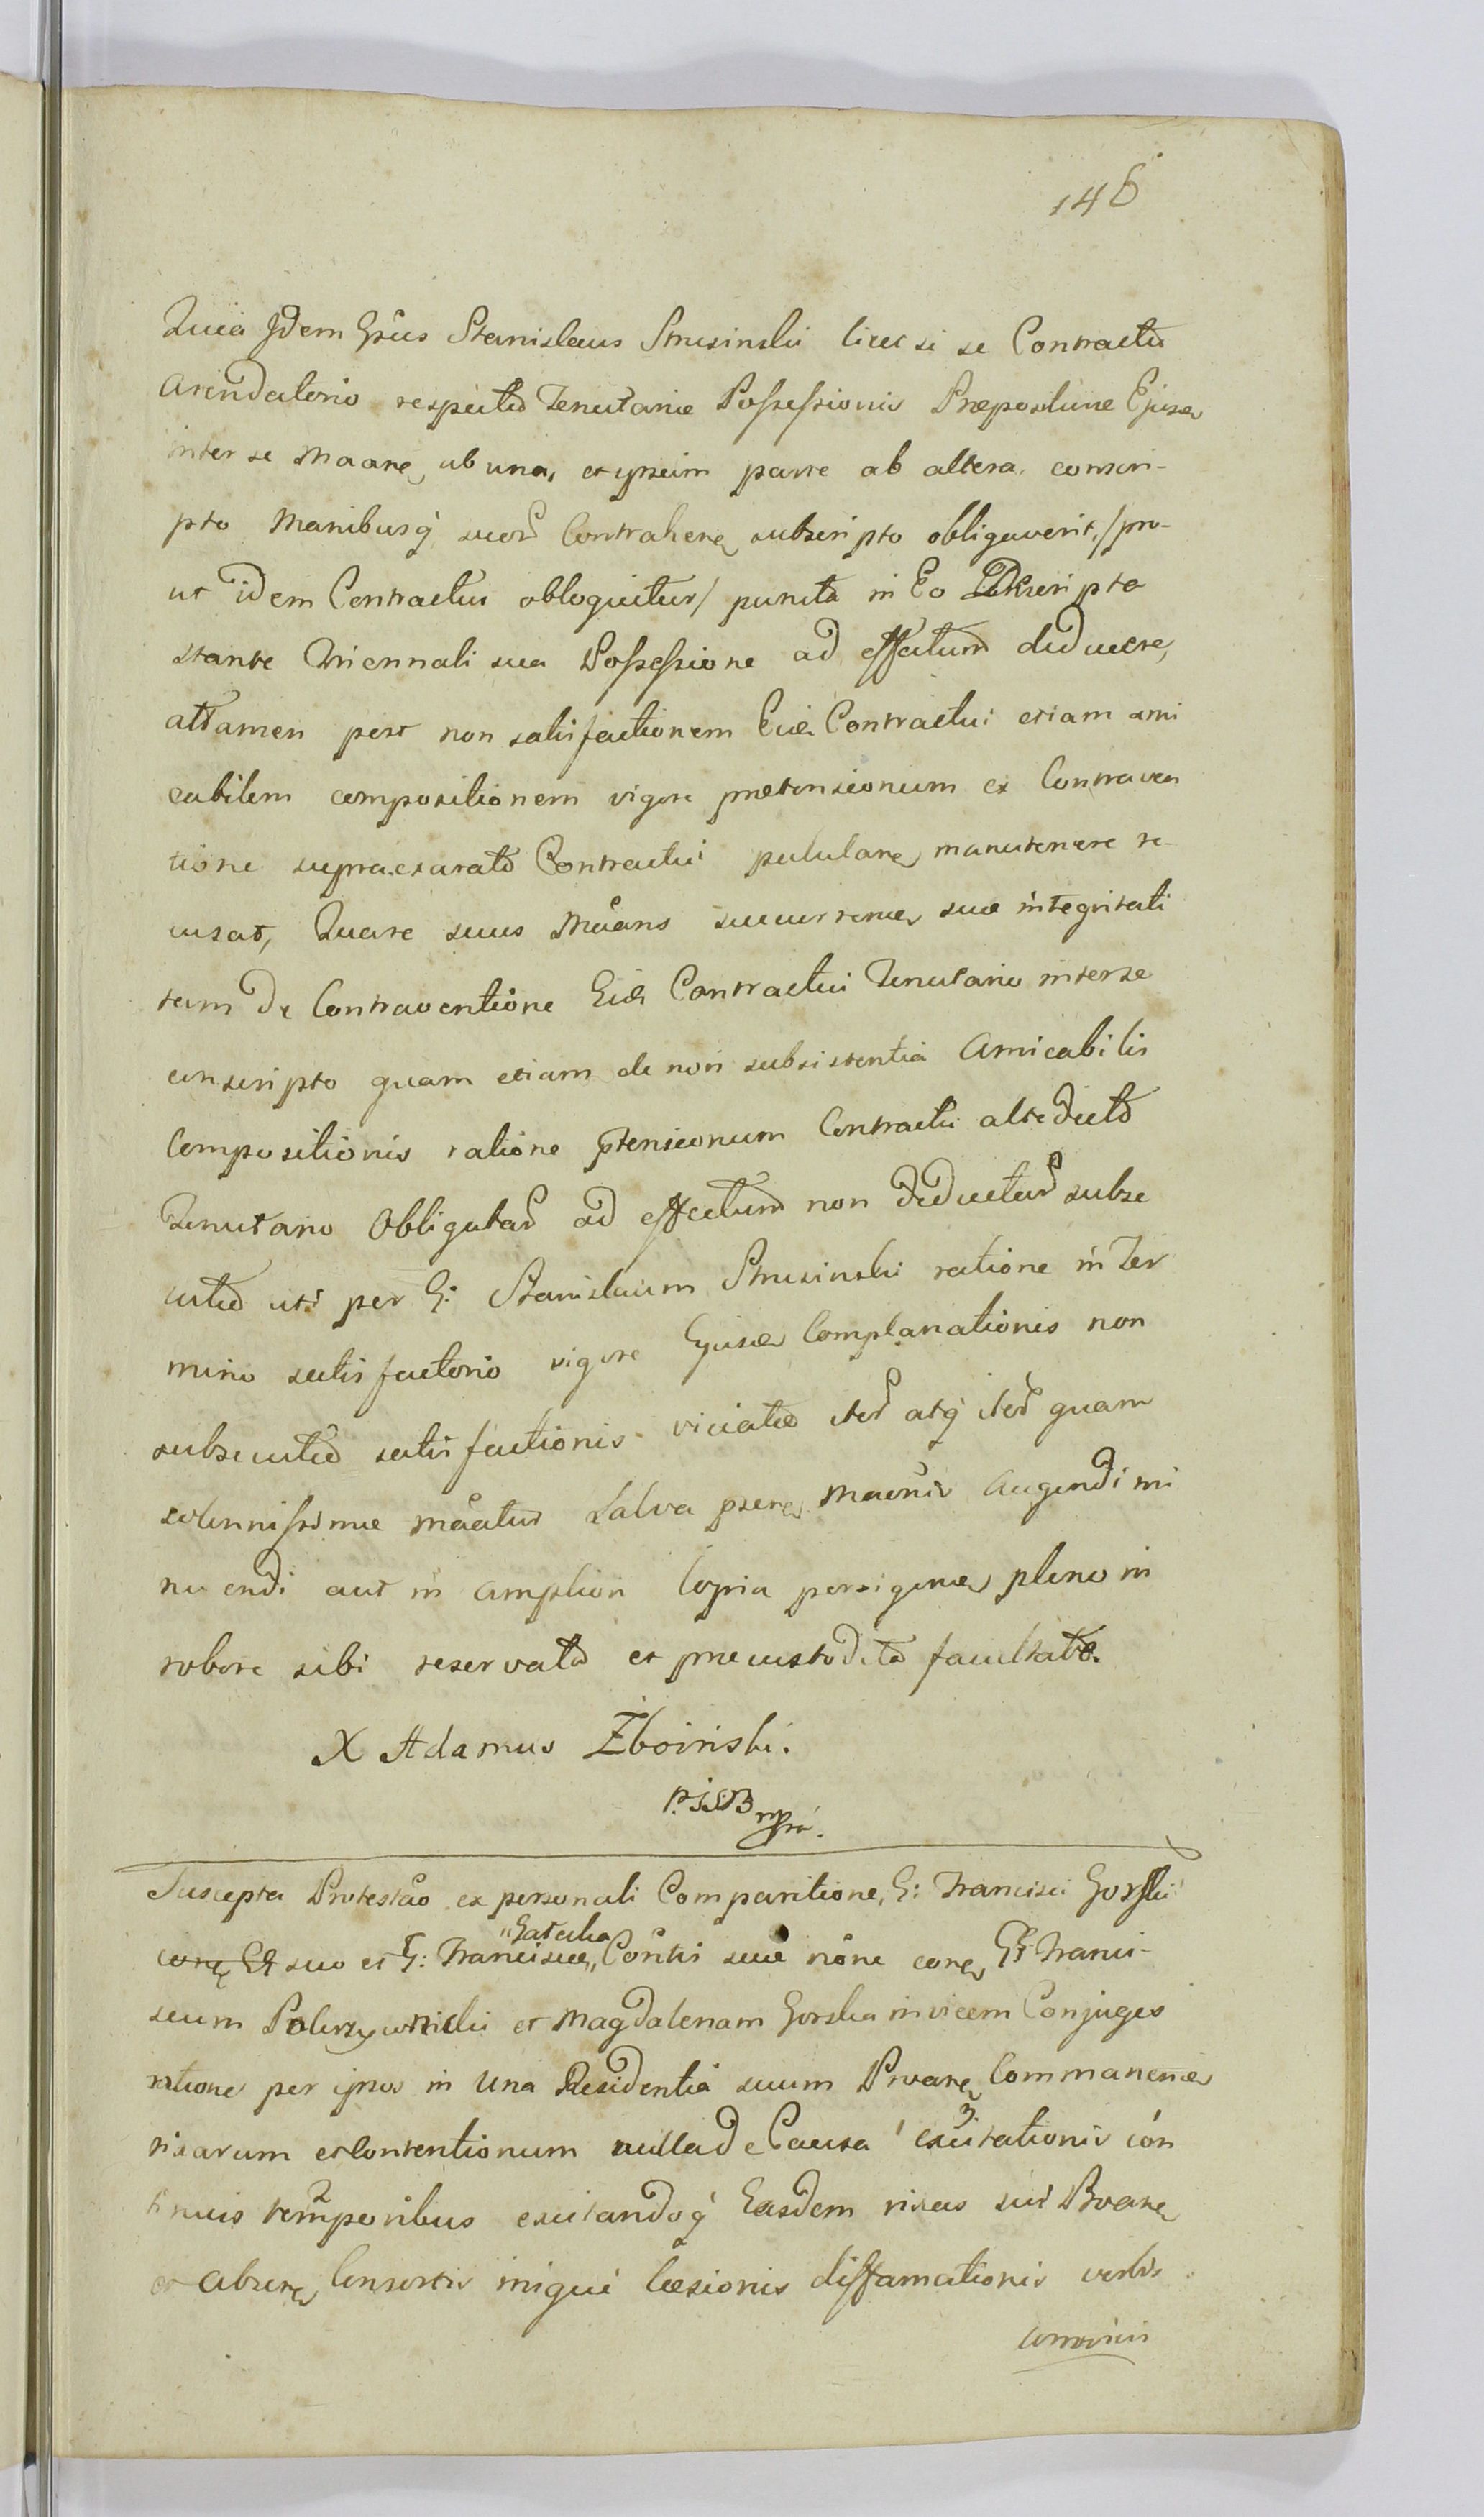 146
Quia Idem Gnsus Stanislaus Strusinski licet si se Contractu
Arendatorio respectu Tenutariæ Possessionis Præposituræ Ejusd
inter se Maare, ab una, et ipseim parte ab altera conscri-
pto Manibusq suor Contrahen subscripto obligaverit, /pro-
ut idem Contractus obloquitur/ puncta in Eo Descripta
stante Triennali sua Possessione ad effectum deducere,
attamen post non satisfactionem Eid Contractui etiam ami
cabilem compositionem vigore prætensionum ex Contraven
tione supraexarato Contractui pululan manutenere re-
cusat, Quare suus Maans succurren suæ integritati
tam de Contraventione Eid Contractui Tenutario inter se
conscripto quam etiam de non subsistentia Amicabilis
Compositionis ratione ptensionum Contractui altedicto
Tenutario Obligatar ad effectum non deductar subse
cutæ uti per G: Stanislaum Strusinski ratione in Ter
mino satisfactorio vigore Ejusd Complanationis non
subsecutæ satisfactionis viciatæ iter atq iter quam
solennissime maatur Salva psen Maonis augendi mi
nuendi aut in ampliori Copia porrigen pleno in
robore sibi reservata et præcustodita facultate.
X Adamus Zboinski.
mpra.
Suscepta Protestao ex personali Comparitione, G: Francisci Gorski
"Gatecka
suo et G: Franciscæ" Contis suæ none con Gs Franci-
scum et Magdalenam Gorska invicem Conjuges
ratione per ipsos in Una Residentia suum Proan Commanen
rixarum et Contentionum nulla de Causa excitationis con
tinuis temporibus excitandoq Easdem rixas sui Proan
et absen Consortis iniqui læsionis diffamationis verbis